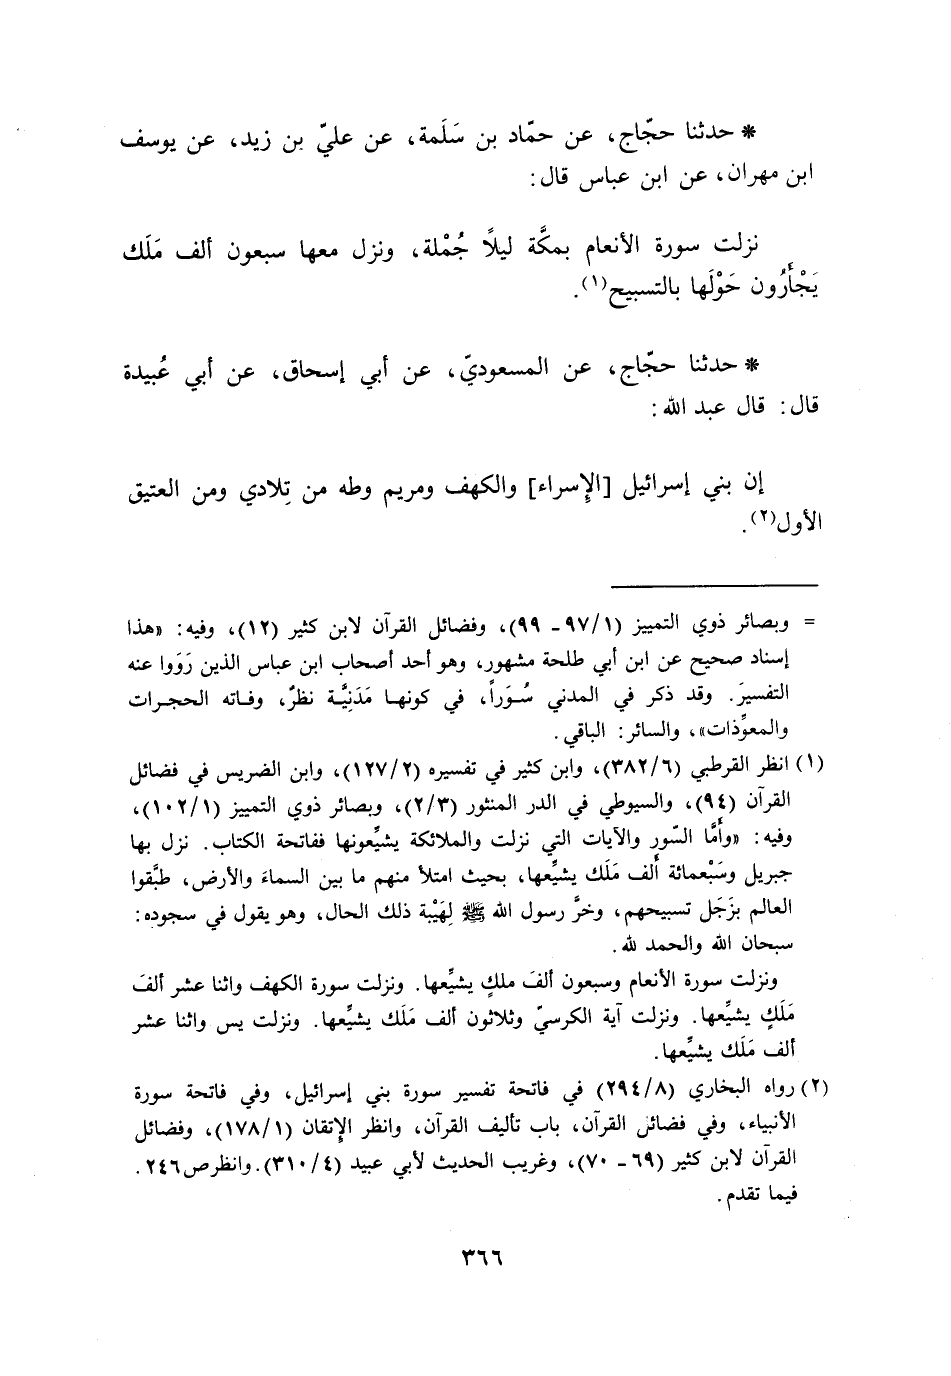 * حدثنا حجّاج، عن حمّاد بن سَلَمة، عن عليّ بن زيد، عن يوسف
ابن مهران، عن ابن عباس قال:
نزلت سورة الأنعام بمكَّة ليلًا جُمْلة، ونزل معها سبعون ألف مَلَك
يَجْأَرُون حَوْلَها بالتسبيح(١).
* حدثنا حجّاج، عن المسعوديّ، عن أبي إسحاق، عن أبي عُبيدة
قال: قال عبد الله:
إن بني إسرائيل [الإسراء] والكهف ومريم وطه من تِلادي ومن العتيق
الأول(٢).
= وبصائر ذوي التمييز (١/٩٧ ـ ٩٩)، وفضائل القرآن لابن كثير (١٢)، وفيه: «هذا
إسناد صحيح عن ابن أبي طلحة مشهور، وهو أحد أصحاب ابن عباس الذين رَوَوا عنه
التفسيرَ. وقد ذكر في المدني سُوَراً، في كونها مَدَنِيَّة نظرٌ، وفاته الحجرات
والمعوِّذات»، والسائر: الباقي.
(١) انظر القرطبي (٦/٣٨٢)، وابن كثير في تفسيره (٢/١٢٧)، وابن الضريس في فضائل
القرآن (٩٤)، والسيوطي في الدر المنثور (٢/٣)، وبصائر ذوي التمييز (١/١٠٢)،
وفيه: «وأَمَّا السّور والآيات التي نزلت والملائكة يشيِّعونها ففاتحة الكتاب. نزل بها
جبريل وسَبْعمائة ألف مَلَك يشيِّعها، بحيث امتلأ منهم ما بين السماءَ والأرض، طبَّقوا
العالم بزَجَل تسبيحهم، وخرَّ رسول الله ﷺ لِهَيْبة ذلك الحال، وهو يقول في سجوده:
سبحان الله والحمد لله.
ونزلت سورة الأنعام وسبعون ألفَ ملكٍ يشيِّعها. ونزلت سورة الكهف واثنا عشر ألفَ
مَلَكٍ يشيِّعها. ونزلت آية الكرسيّ وثلاثون ألف مَلَك يشيِّعها. ونزلت يس واثنا عشر
ألف مَلَك يشيِّعها.
(٢) رواه البخاري (٨/٢٩٤) في فاتحة تفسير سورة بني إسرائيل، وفي فاتحة سورة
الأنبياء، وفي فضائل القرآن، باب تأليف القرآن، وانظر الإتقان (١/١٧٨)، وفضائل
القرآن لابن كثير (٦٩ ـ ٧٠)، وغريب الحديث لأبي عبيد (٤/٣١٠). وانظر ص ٢٤٦.
فيما تقدم.
٣٦٦